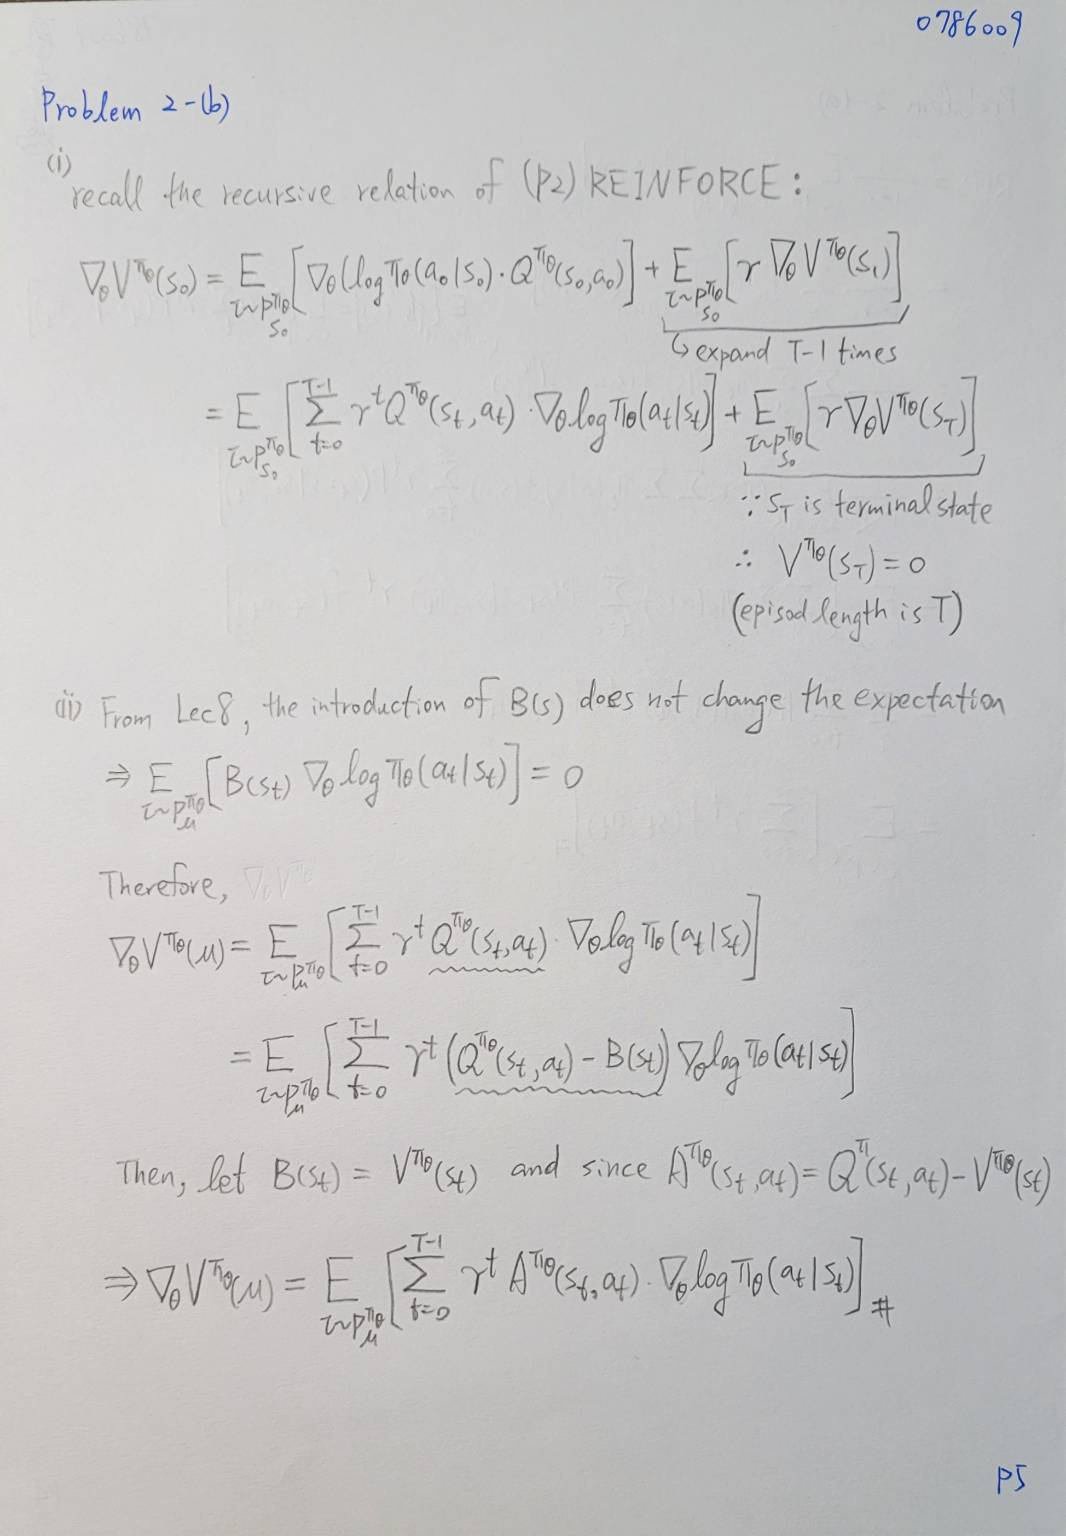 0786009
Problem 2-(b)
(i)
recall the recursive relation of (P2) REINFORCE:
∇θV^πθ(s₀) = E_{τ~P^πθ_{s₀}} [∇θ(log πθ(a₀|s₀)·Q^πθ(s₀,a₀)] + E_{τ~P^πθ_{s₀}} [γ ∇θV^πθ(s₁)]
↳ expand T-1 times
= E_{τ~P^πθ_{s₀}} [Σ_{t=0}^{T-1} γ^t Q^πθ(s_t, a_t)·∇θ log πθ(a_t|s_t)] + E_{τ~P^πθ_{s₀}} [γ ∇θV^πθ(s_T)]
∵ s_T is terminal state
∴ V^πθ(s_T) = 0
(episod length is T)
(ii) From Lec8, the introduction of B(s) does not change the expectation
⇒ E_{τ~P^πθ_μ} [B(s_t) ∇θ log πθ(a_t|s_t)] = 0
Therefore,
∇θV^πθ(μ) = E_{τ~P^πθ_μ} [Σ_{t=0}^{T-1} γ^t Q^πθ(s_t,a_t)·∇θ log πθ(a_t|s_t)]
= E_{τ~P^πθ_μ} [Σ_{t=0}^{T-1} γ^t (Q^πθ(s_t,a_t) - B(s_t)) ∇θ log πθ(a_t|s_t)]
Then, let B(s_t) = V^πθ(s_t) and since A^πθ(s_t,a_t) = Q^π(s_t,a_t) - V^πθ(s_t)
⇒ ∇θV^πθ(μ) = E_{τ~P^πθ_μ} [Σ_{t=0}^{T-1} γ^t A^πθ(s_t,a_t)·∇θ log πθ(a_t|s_t)] #
P5